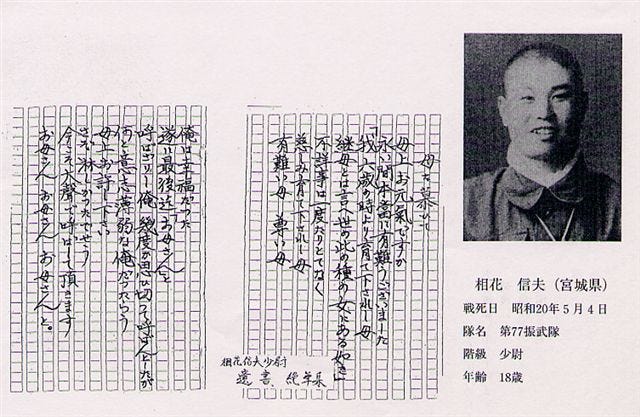 母を慕ひて
母上お元氣ですか
永い間本當に有難うございました
「我六歳の時より育て下されし母
継母とは言へ世の此の種の女にある如き」
不祥事は一度たりとてなく
慈しみ育て下されし母
有難い母 尊い母
俺は幸福だった
遂に最後迄「お母さん」と
呼ばざりし俺 幾度か思ひ切って呼ばんとしたが
何と意志薄弱な俺だったらう
母上お許し下さい
さぞ淋しかったでせう
今こそ大聲で呼ばして頂きます
お母さん お母さん お母さんと。
相花信夫少尉
遺書
相花 信夫（宮城県）
戦死日 昭和20年5月4日
隊名 第77振武隊
階級 少尉
年齢 18歳